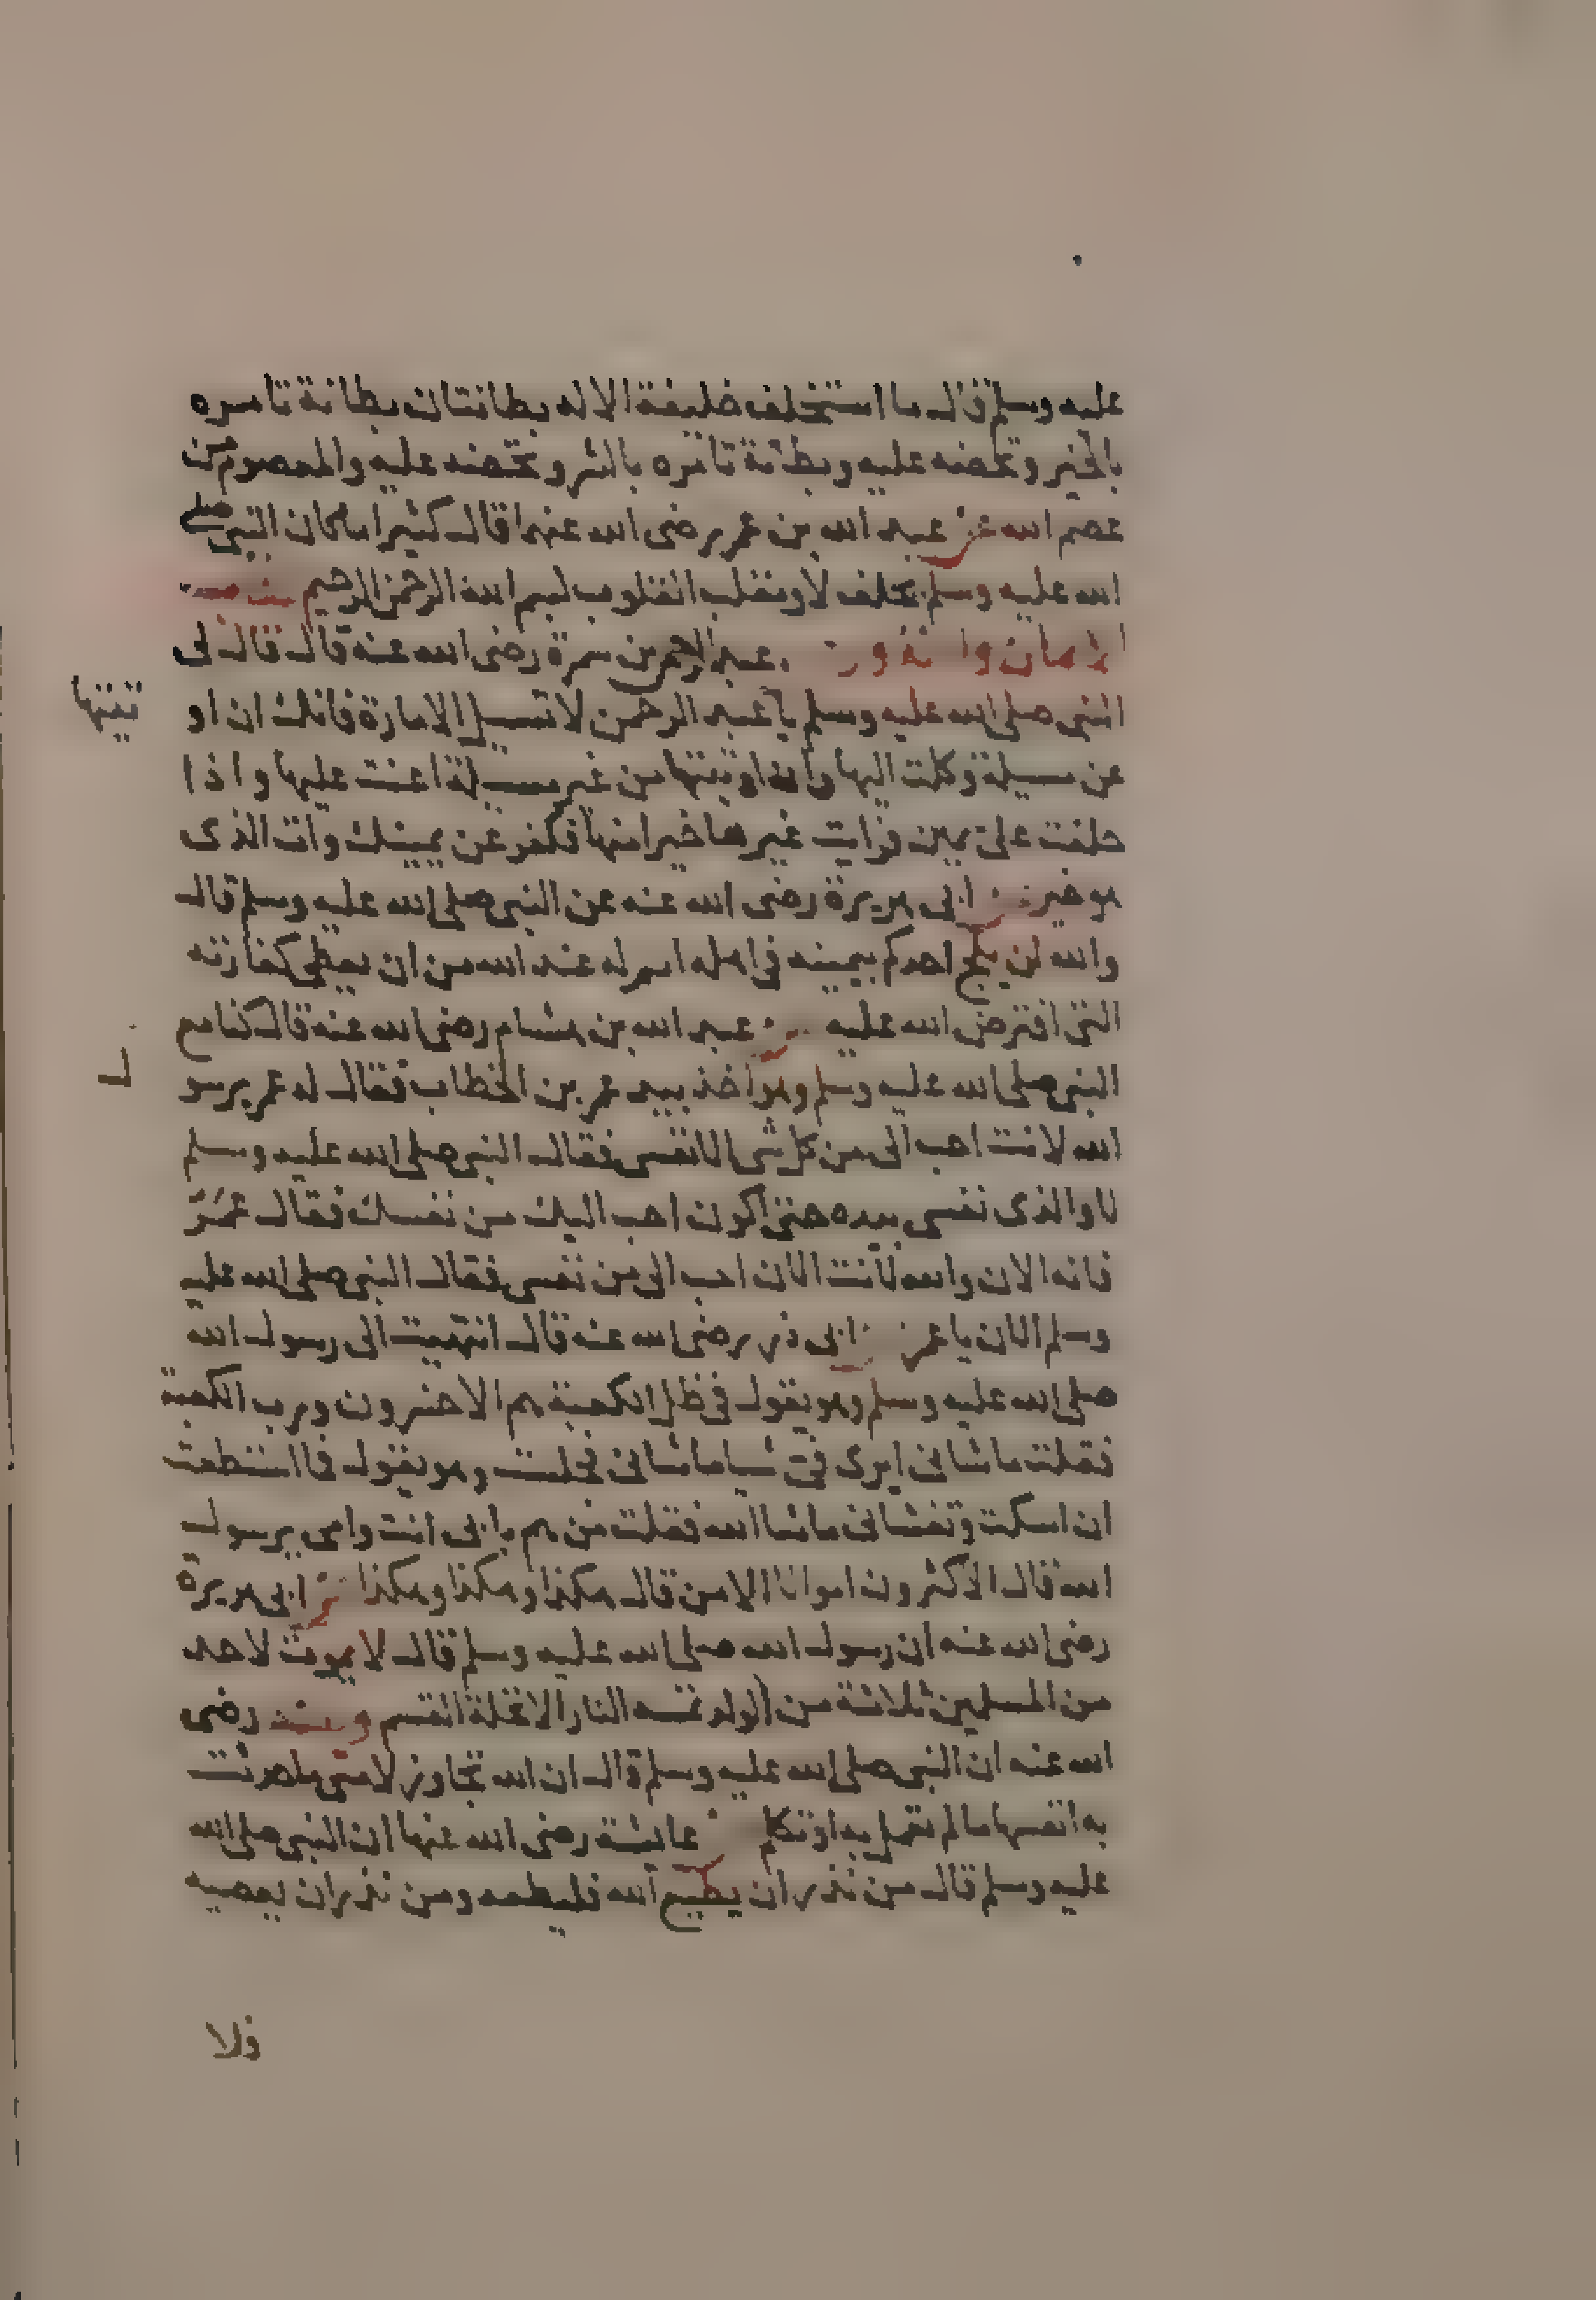 عليه وسلم قال ما استخلف خليفة الا له بطانتان بطانة تامره
بالخير وتحضه عليه وبطانة تامره بالشر وتحضه عليه والمعصوم من
عصم الله عن عبد الله بن عمر رضى الله عنهما قال كثيرا ما كان النبى صلى
الله عليه وسلم يحلف لا ومقلب القلوب بسم الله الرحمن الرحيم
الايمان والنذور عبد الرحمن بن سمرة رضى الله عنه قال قال لى
النبى صلى الله عليه وسلم يا عبد الرحمن لا تسيل الامارة فانك ان او
تيتها
عن مسيلة وكلت اليها وان اوتيتها من غير مسيلة اعنت عليها واذا
حلفت على يمين فرايت غيرها خيرا منها فكفر عن يمينك وات الذى
هو خير عن ابى هريرة رضى الله عنه عن النبى صلى الله عليه وسلم قال
والله لن يلج احدكم بيمينه فى اهله اثم له عند الله من ان يعطى كفارته
التى افترض الله عليه عن عبد الله بن هشام رضى الله عنه قال كنا مع
النبى صلى الله عليه وسلم وهو اخذ بيد عمر بن الخطاب فقال له عمر يرسو
ل
الله لانت احب الى من كل شى الا نفسى فقال النبى صلى الله عليه وسلم
لا والذى نفسى بيده حتى اكون احب اليك من نفسك فقال عمر
فانه الان والله لانت الان احب الى من نفسى فقال النبى صلى الله عليه
وسلم الان يا عمر عن ابى ذر رضى الله عنه قال انتهيت الى رسول الله
صلى الله عليه وسلم وهو يقول فى ظل الكعبة هم الاخسرون ورب الكعبة
فقلت ما شانى ايرى فى شيا ما شانى فجلست وهو يقول فما استطعت
ان اسكت وتغشانى ما شا الله فقلت من هم بابى انت وامى يرسول
الله قال الاكثرون اموالا الا من قال هكذا وهكذا وهكذا عن ابى هريرة
رضى الله عنه ان رسول الله صلى الله عليه وسلم قال لا يموت لاحد
من المسلمين ثلاثة من الولد تمسه النار الا تحلة القسم وعنه رضى
الله عنه ان النبى صلى الله عليه وسلم قال ان الله تجاوز لامتى ما حدثت
به انفسها ما لم تعمل به او تكلم عن عايشة رضى الله عنها ان النبى صلى الله
عليه وسلم قال من نذر ان يطيع الله فليطعه ومن نذر ان يعصيه
فلا